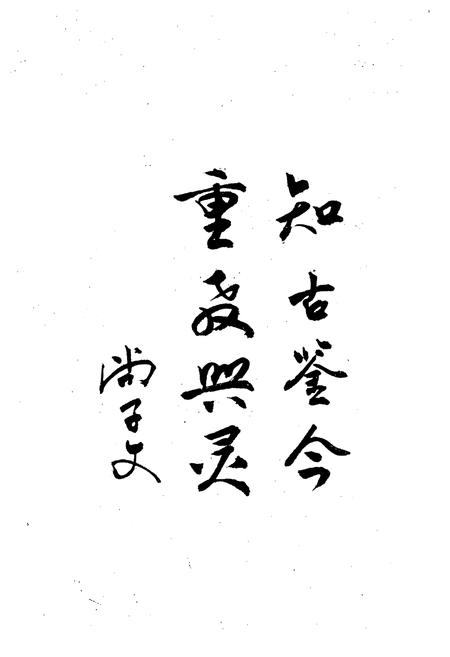 知古鉴今
重教兴灵
尚子文